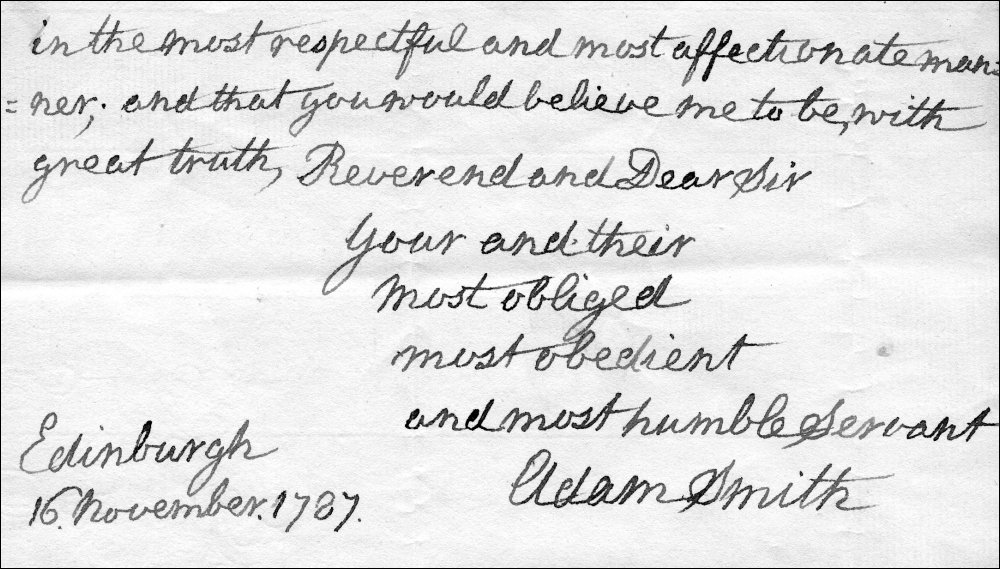 in the most respectful and most affectionate man=
=ner; and that you would believe me to be, with
great truth, Reverend and Dear Sir
Your and their
most obliged
most obedient
and most humble Servant
Edinburgh
16. November. 1787.
Adam Smith